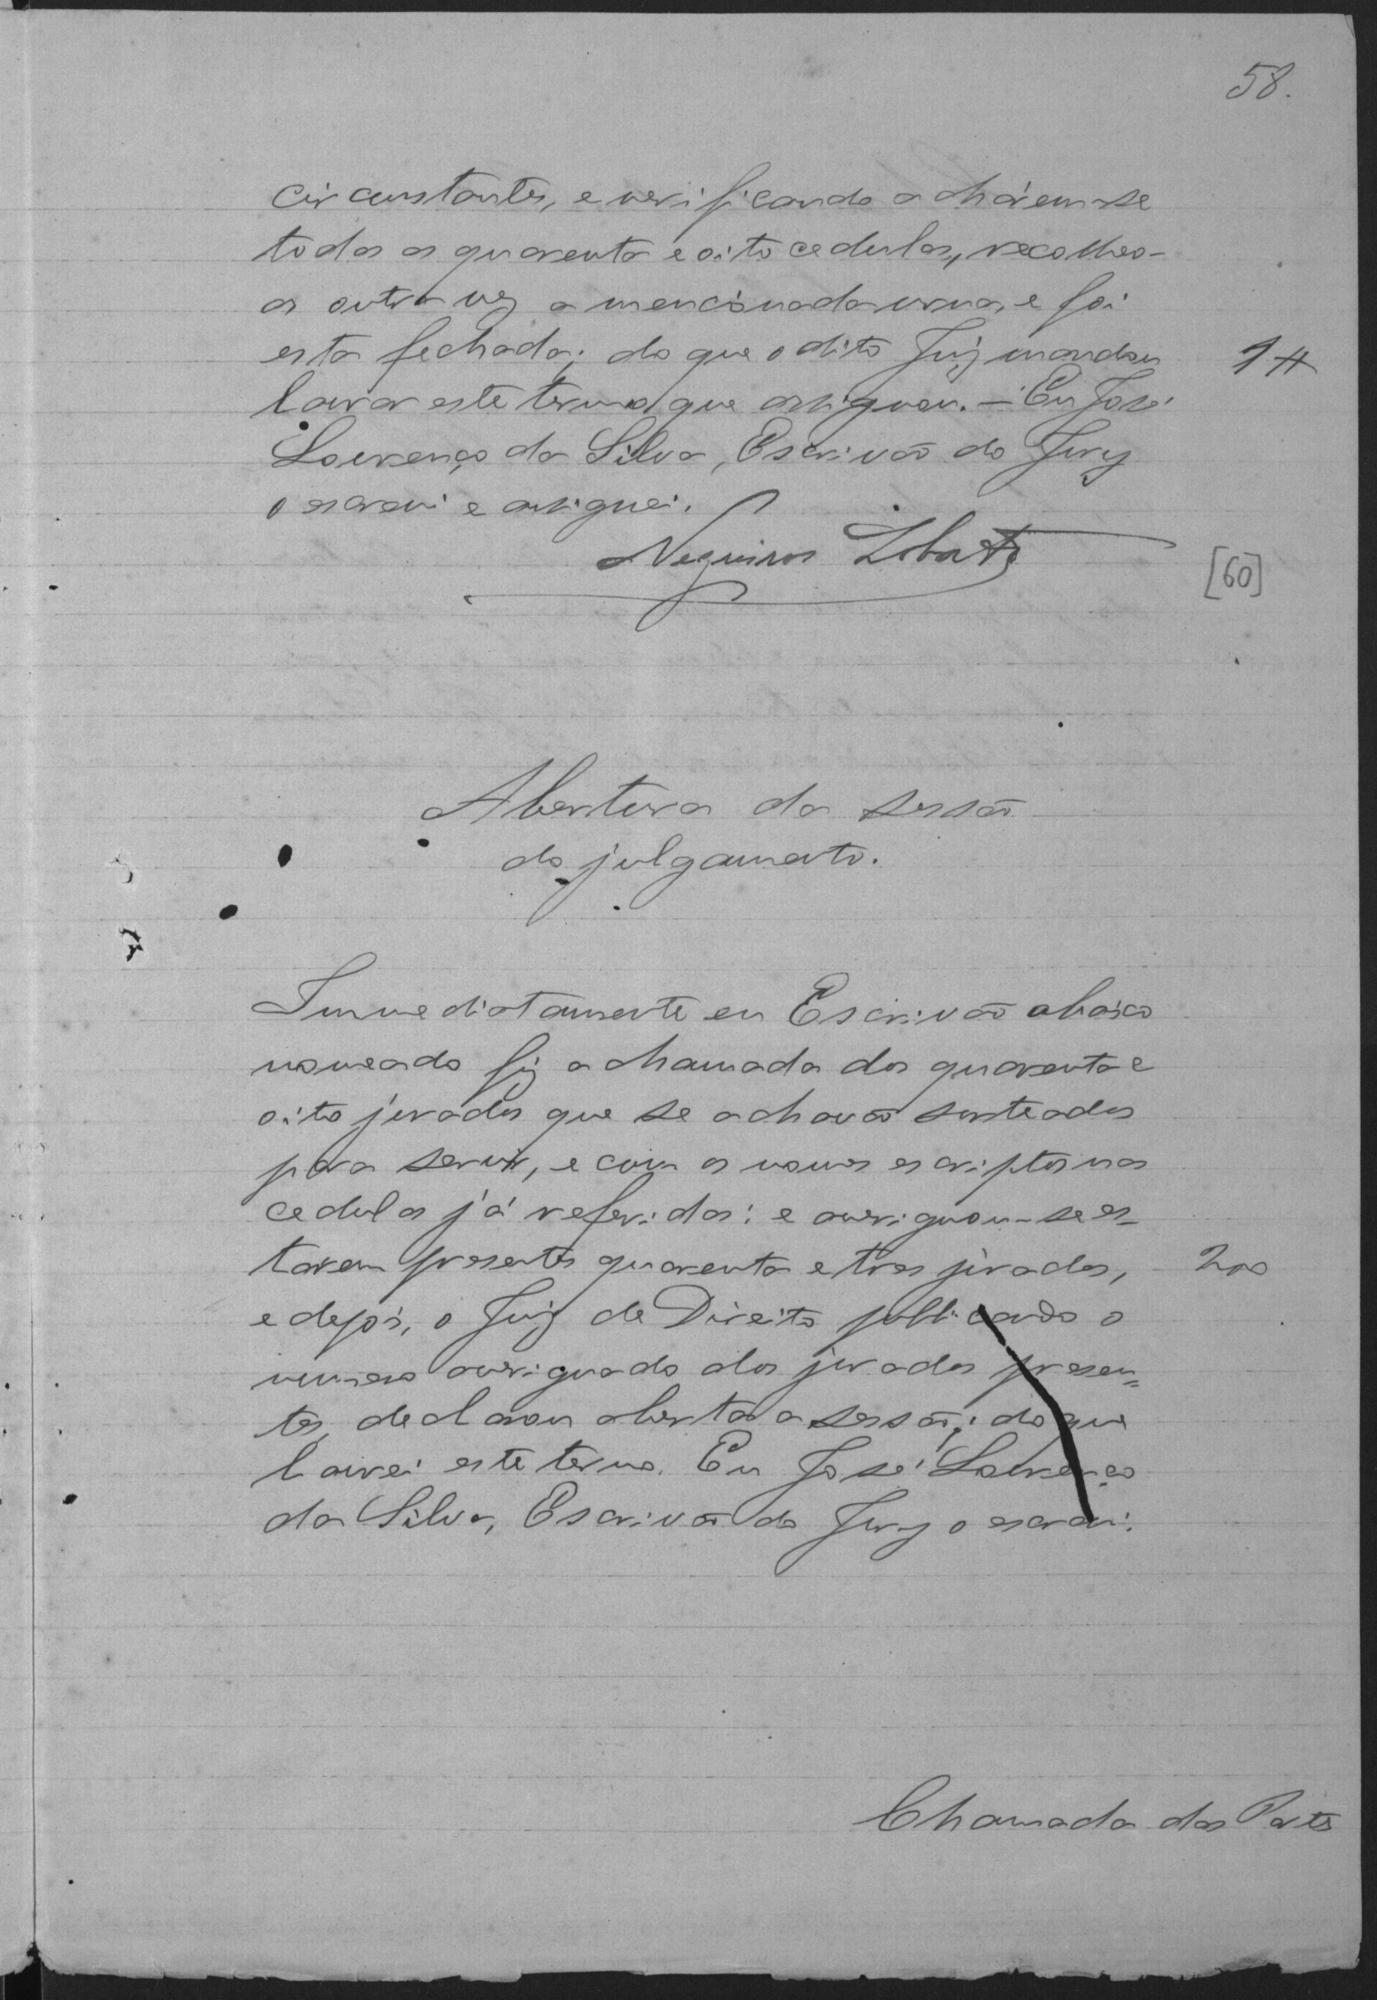 58.
circunstantes, e verificando acháremse
todas as quarenta e oito cedulas, recolheo-
as outra vez a mencionada urna, e foi
esta fechada; do que o dito Juiz mandou
1#
lavrar este termo que assignou. — Eu José
Lourenço da Silva, Escrivão do Jury
o escrevi e assignei.
Lobato
[60]
Abertura da sessão
do julgamento.
Immediatamente eu Escrivão abaixo
nomeado fiz a chamada dos quarenta e
oito jurados que se achavão sorteados
para servir, e com os nomes escriptos nas
cedulas já referidas: e averiguou-se es-
tarem presentes quarenta e tres jurados,
200
e depois, o Juiz de Direito publicando o
numero averiguado dos jurados presen=
tes, declarou aberta a sessão; do que
lavrei este termo. Eu José Lourenço
da Silva, Escrivão do Jury o escrevi.
Chamada das Partes